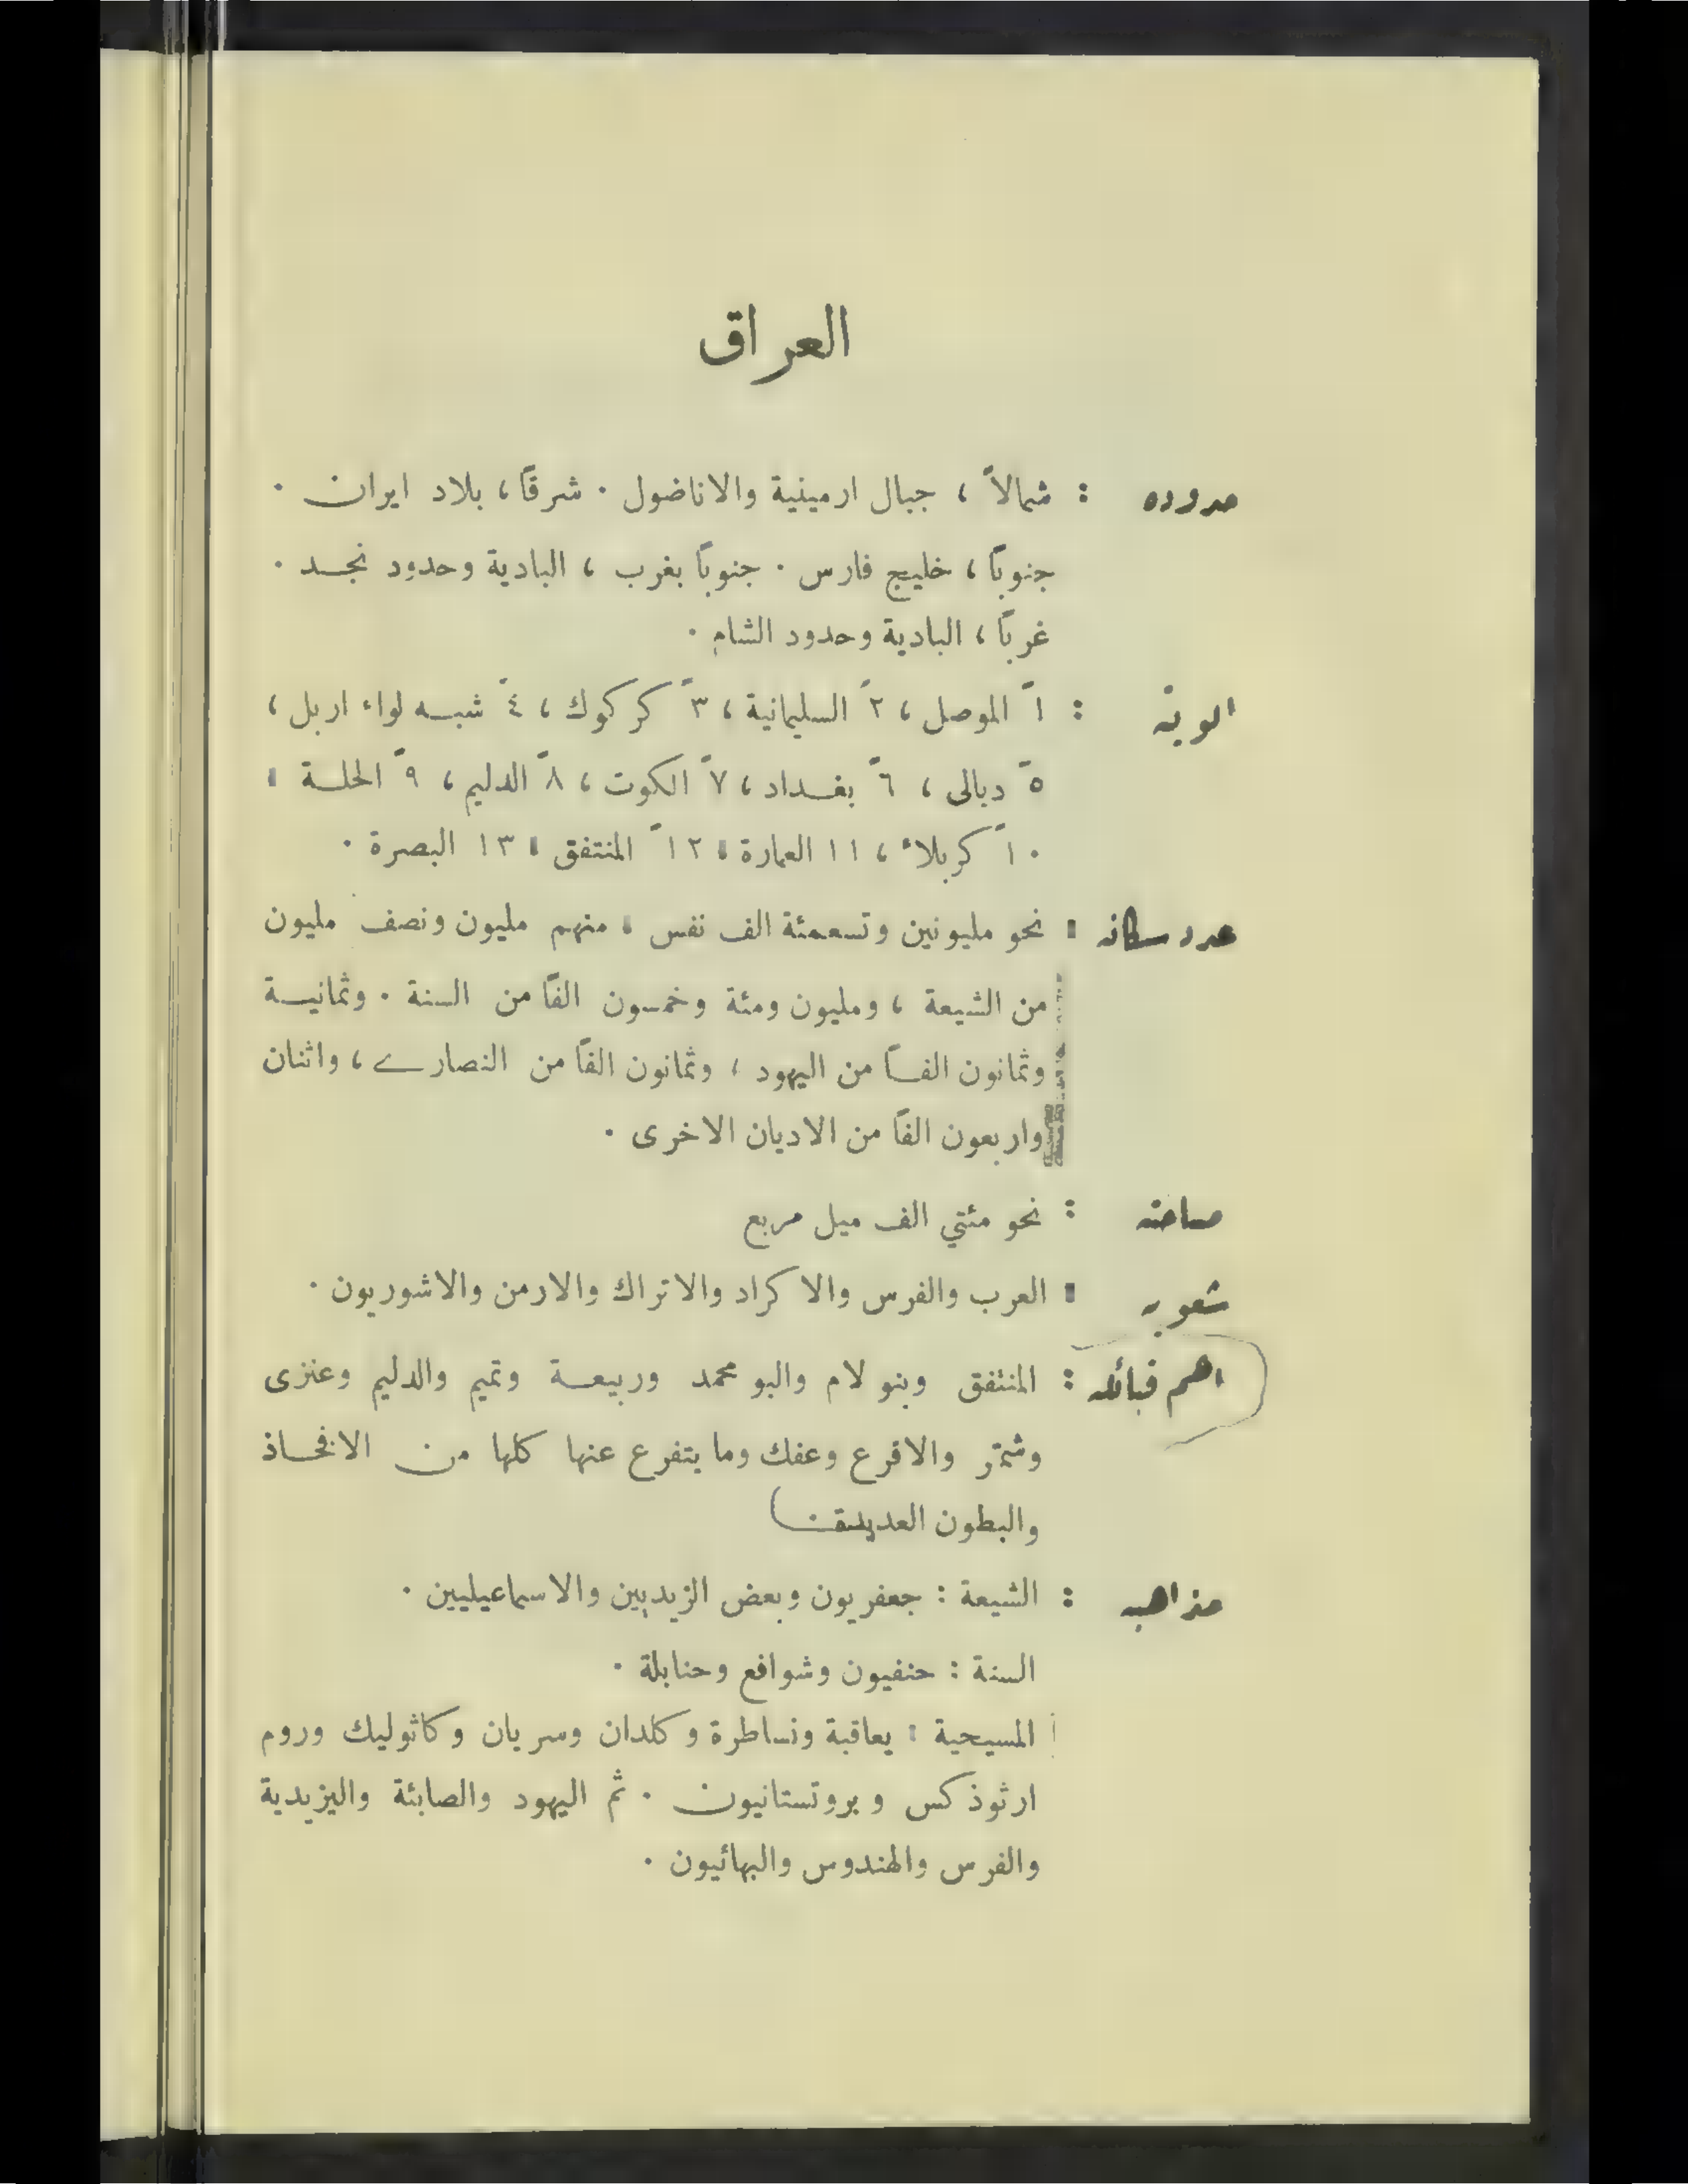 العراق
حدوده : شمالاً ، جبال ارمينية والاناضول . شرقاً ، بلاد ايران .
جنوباً ، خليج فارس . جنوباً بغرب ، البادية وحدود نجد .
غرباً ، البادية وحدود الشام .
الويته : ١ً الموصل ، ٢ً السليمانية ، ٣ً كركوك ، ٤ً شبه لواء اربل ،
٥ً ديالى ، ٦ً بغداد ، ٧ً الكوت ، ٨ً الدليم ، ٩ً الحلة ،
١٠ً كربلاء ، ١١ العمارة ، ١٢ً المنتفق ، ١٣ البصرة .
عدد سكانه : نحو مليونين وتسعمئة الف نفس ، منهم مليون ونصف مليون
من الشيعة ، ومليون ومئة وخمسون الفاً من السنة . وثمانية
وثمانون الفاً من اليهود ، وثمانون الفاً من النصارى ، واثنان
واربعون الفاً من الاديان الاخرى .
مساحته : نحو مئتي الف ميل مربع
شعوبه : العرب والفرس والاكراد والاتراك والارمن والاشوريون .
اهم قبائله : المنتفق وبنو لام والبو محمد وربيعة وتميم والدليم وعنزى
وشمّر والاقرع وعفك وما يتفرع عنها كلها من الافخاذ
والبطون العديدة .
مذاهبه : الشيعة : جعفريون وبعض الزيديين والاسماعيليين .
السنة : حنفيون وشوافع وحنابلة .
المسيحية : يعاقبة ونساطرة وكلدان وسريان وكاثوليك وروم
ارثوذكس وبروتستانيون . ثم اليهود والصابئة واليزيدية
والفرس والهندوس والبهائيون .